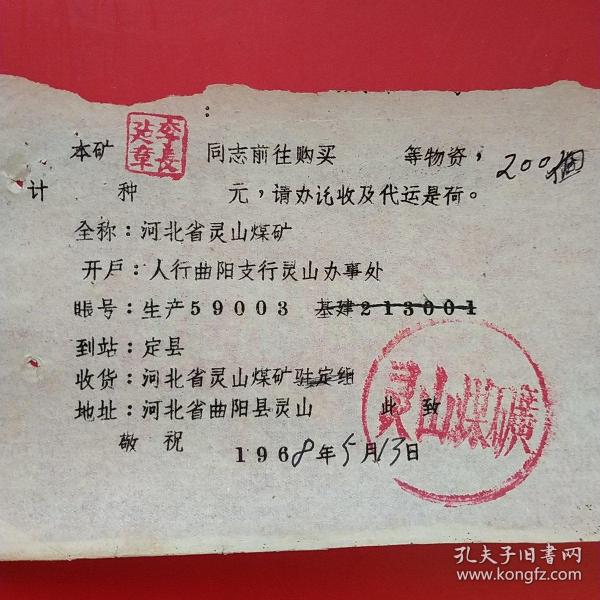 本矿 李長延章 同志前往购买 等物资， 200個
计 种 元，请办讬收及代运是荷。
全称：河北省灵山煤矿
开户：人行曲阳支行灵山办事处
账号：生产59003 基建213001
到站：定县
收货：河北省灵山煤矿驻定组
地址：河北省曲阳县灵山 此致
敬祝 1968年5月13日
灵山煤礦
孔夫子旧书网
www.kongfz.com